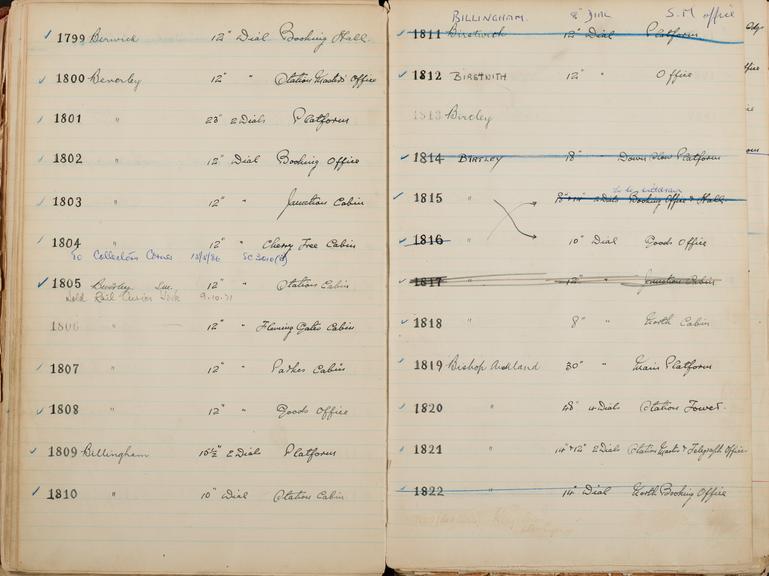 1799 Berwick 12" Dial Booking Hall.
1800 Beverley 12" " Station Masters Office
1801 " 23" 2 Dials Platform
1802 " 12" Dial Booking Office
1803 " 12" " Junction Cabin
1804 " 12" " Cherry Tree Cabin
To Collectors Corner 12/2/86
1805 Beverley Jnc. 12" " Station Cabin
Sold 9.10.71
1806 " 12" " Fleming Gates Cabin
1807 " 12" " Parkes Cabin
1808 " 12" " Goods Office
1809 Billingham 16½" 2 Dials Platform
1810 " 10" Dial Station Cabin
BILLINGHAM. 8" DIAL S.M office
1811 12" Dial Platform
1812 12" " Office
1813 Birtley
1814 BIRTLEY 18" " Down Slow Platform
to be withdrawn
1815 " 2 Dials Booking Office & Hall
1816 " 10" Dial Goods Office
1817 " 12" " Junction Cabin
1818 " 8" " North Cabin
1819 Bishop Auckland 30" " Main Platform
1820 " 48" 4 Dials Station Tower.
1821 " 14" & 12" 2 Dials Station Master & Telegraph Office
1822 " 14" Dial North Booking Office